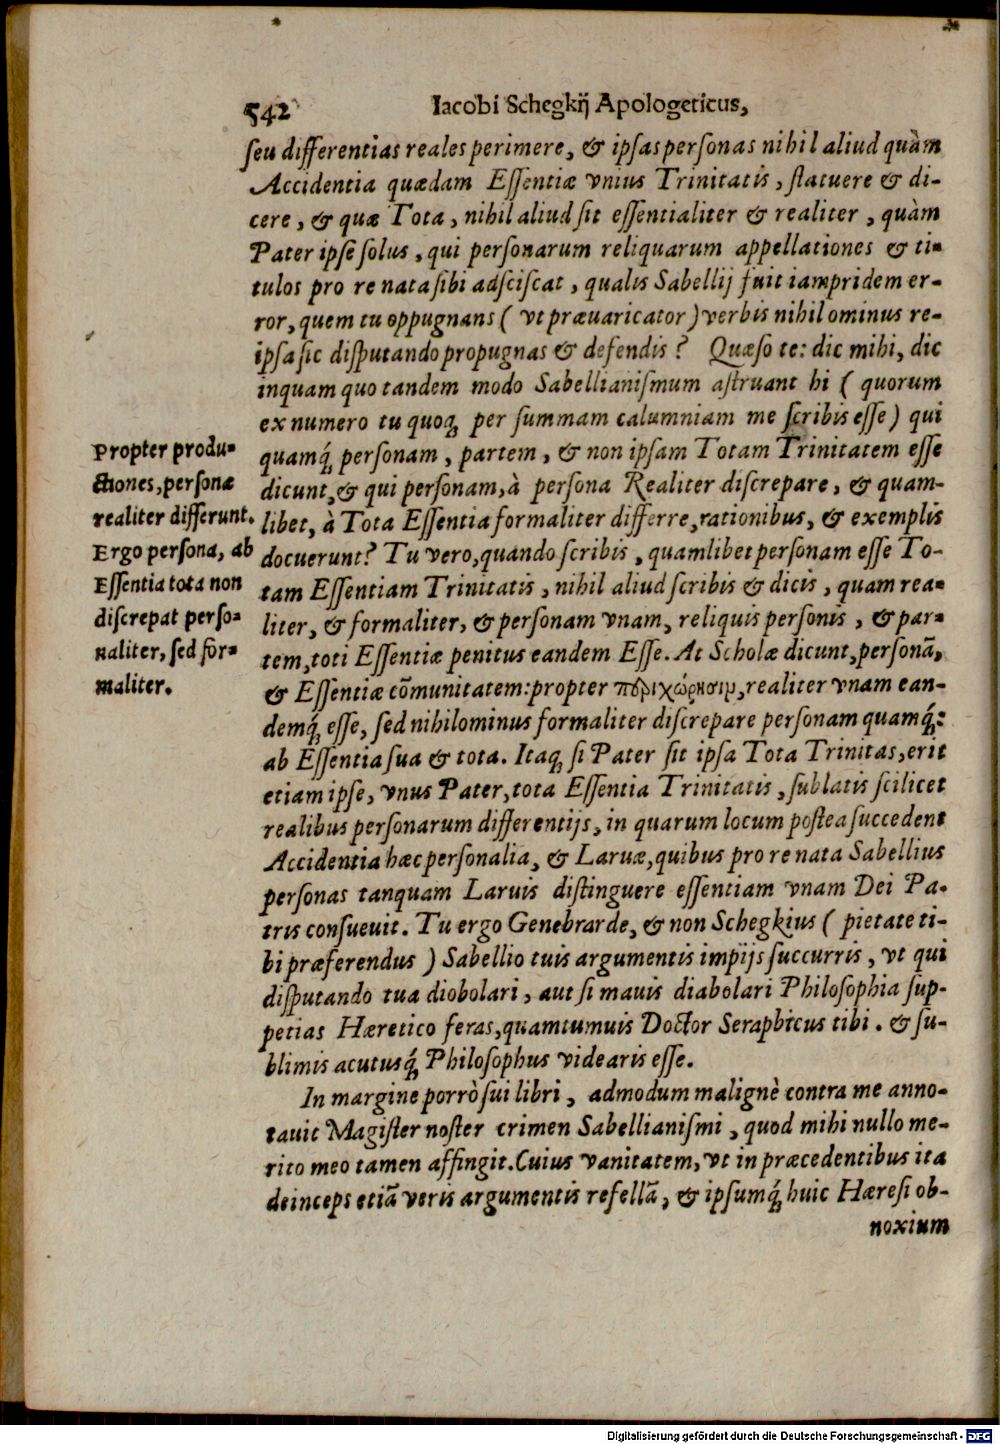 542 Iacobi Schegkij Apologeticus,
ſeu differentias reales perimere, & ipſas perſonas nihil aliud quàm
Accidentia quædam Eſſentiæ vnius Trinitatis, ſtatuere & di-
cere, & quæ Tota, nihil aliud ſit eſſentialiter & realiter, quàm
Pater ipſe ſolus, qui perſonarum reliquarum appellationes & ti-
tulos pro re nata ſibi adſciſcat, qualis Sabellij fuit iampridem er-
ror, quem tu oppugnans ( vt præuaricator ) verbis nihilominus re-
ipſa ſic diſputando propugnas & defendis? Quæſo te: dic mihi, dic
inquam quo tandem modo Sabellianiſmum aſtruant hi ( quorum
ex numero tu quoq́; per ſummam calumniam me ſcribis eſſe ) qui
quamq́; perſonam, partem, & non ipſam Totam Trinitatem eſſe
dicunt, & qui perſonam, à perſona Realiter diſcrepare, & quam-
libet, à Tota Eſſentia formaliter differre, rationibus, & exemplis
docuerunt? Tu vero, quando ſcribis, quamlibet perſonam eſſe To-
tam Eſſentiam Trinitatis, nihil aliud ſcribis & dicis, quam rea-
liter, & formaliter, & perſonam vnam, reliquis perſonis, & par-
tem, toti Eſſentiæ penitus eandem Eſſe. At Scholæ dicunt, perſonā,
& Eſſentiæ cōmunitatem: propter περιχώρησιμ, realiter vnam ean-
demq́; eſſe, ſed nihilominus formaliter diſcrepare perſonam quamq́;:
ab Eſſentia ſua & tota. Itaq; ſi Pater ſit ipſa Tota Trinitas, erit
etiam ipſe, vnus Pater, tota Eſſentia Trinitatis, ſublatis ſcilicet
realibus perſonarum differentijs, in quarum locum poſtea ſuccedent
Accidentia hæc perſonalia, & Laruæ, quibus pro re nata Sabellius
perſonas tanquam Laruis diſtinguere eſſentiam vnam Dei Pa-
tris conſueuit. Tu ergo Genebrarde, & non Schegkius ( pietate ti-
bi præferendus ) Sabellio tuis argumentis impijs ſuccurris, vt qui
diſputando tua diobolari, aut ſi mauis diabolari Philoſophia ſup-
petias Hæretico feras, quamtumuis Doctor Seraphicus tibi. & ſu-
blimis acutusq́; Philoſophus videaris eſſe.
In margine porrò ſui libri, admodum malignè contra me anno-
tauit Magiſter noſter crimen Sabellianiſmi, quod mihi nullo me-
rito meo tamen affingit. Cuius vanitatem, vt in præcedentibus ita
deinceps etiā veris argumentis refellā, & ipſumq́; huic Hæreſi ob-
noxium
Propter produ-
ctiones, perſonæ
realiter differunt.
Ergo perſona, ab
Eſſentia tota non
diſcrepat perſo-
naliter, ſed for-
maliter.
Digitalisierung gefördert durch die Deutsche Forschungsgemeinschaft - DFG